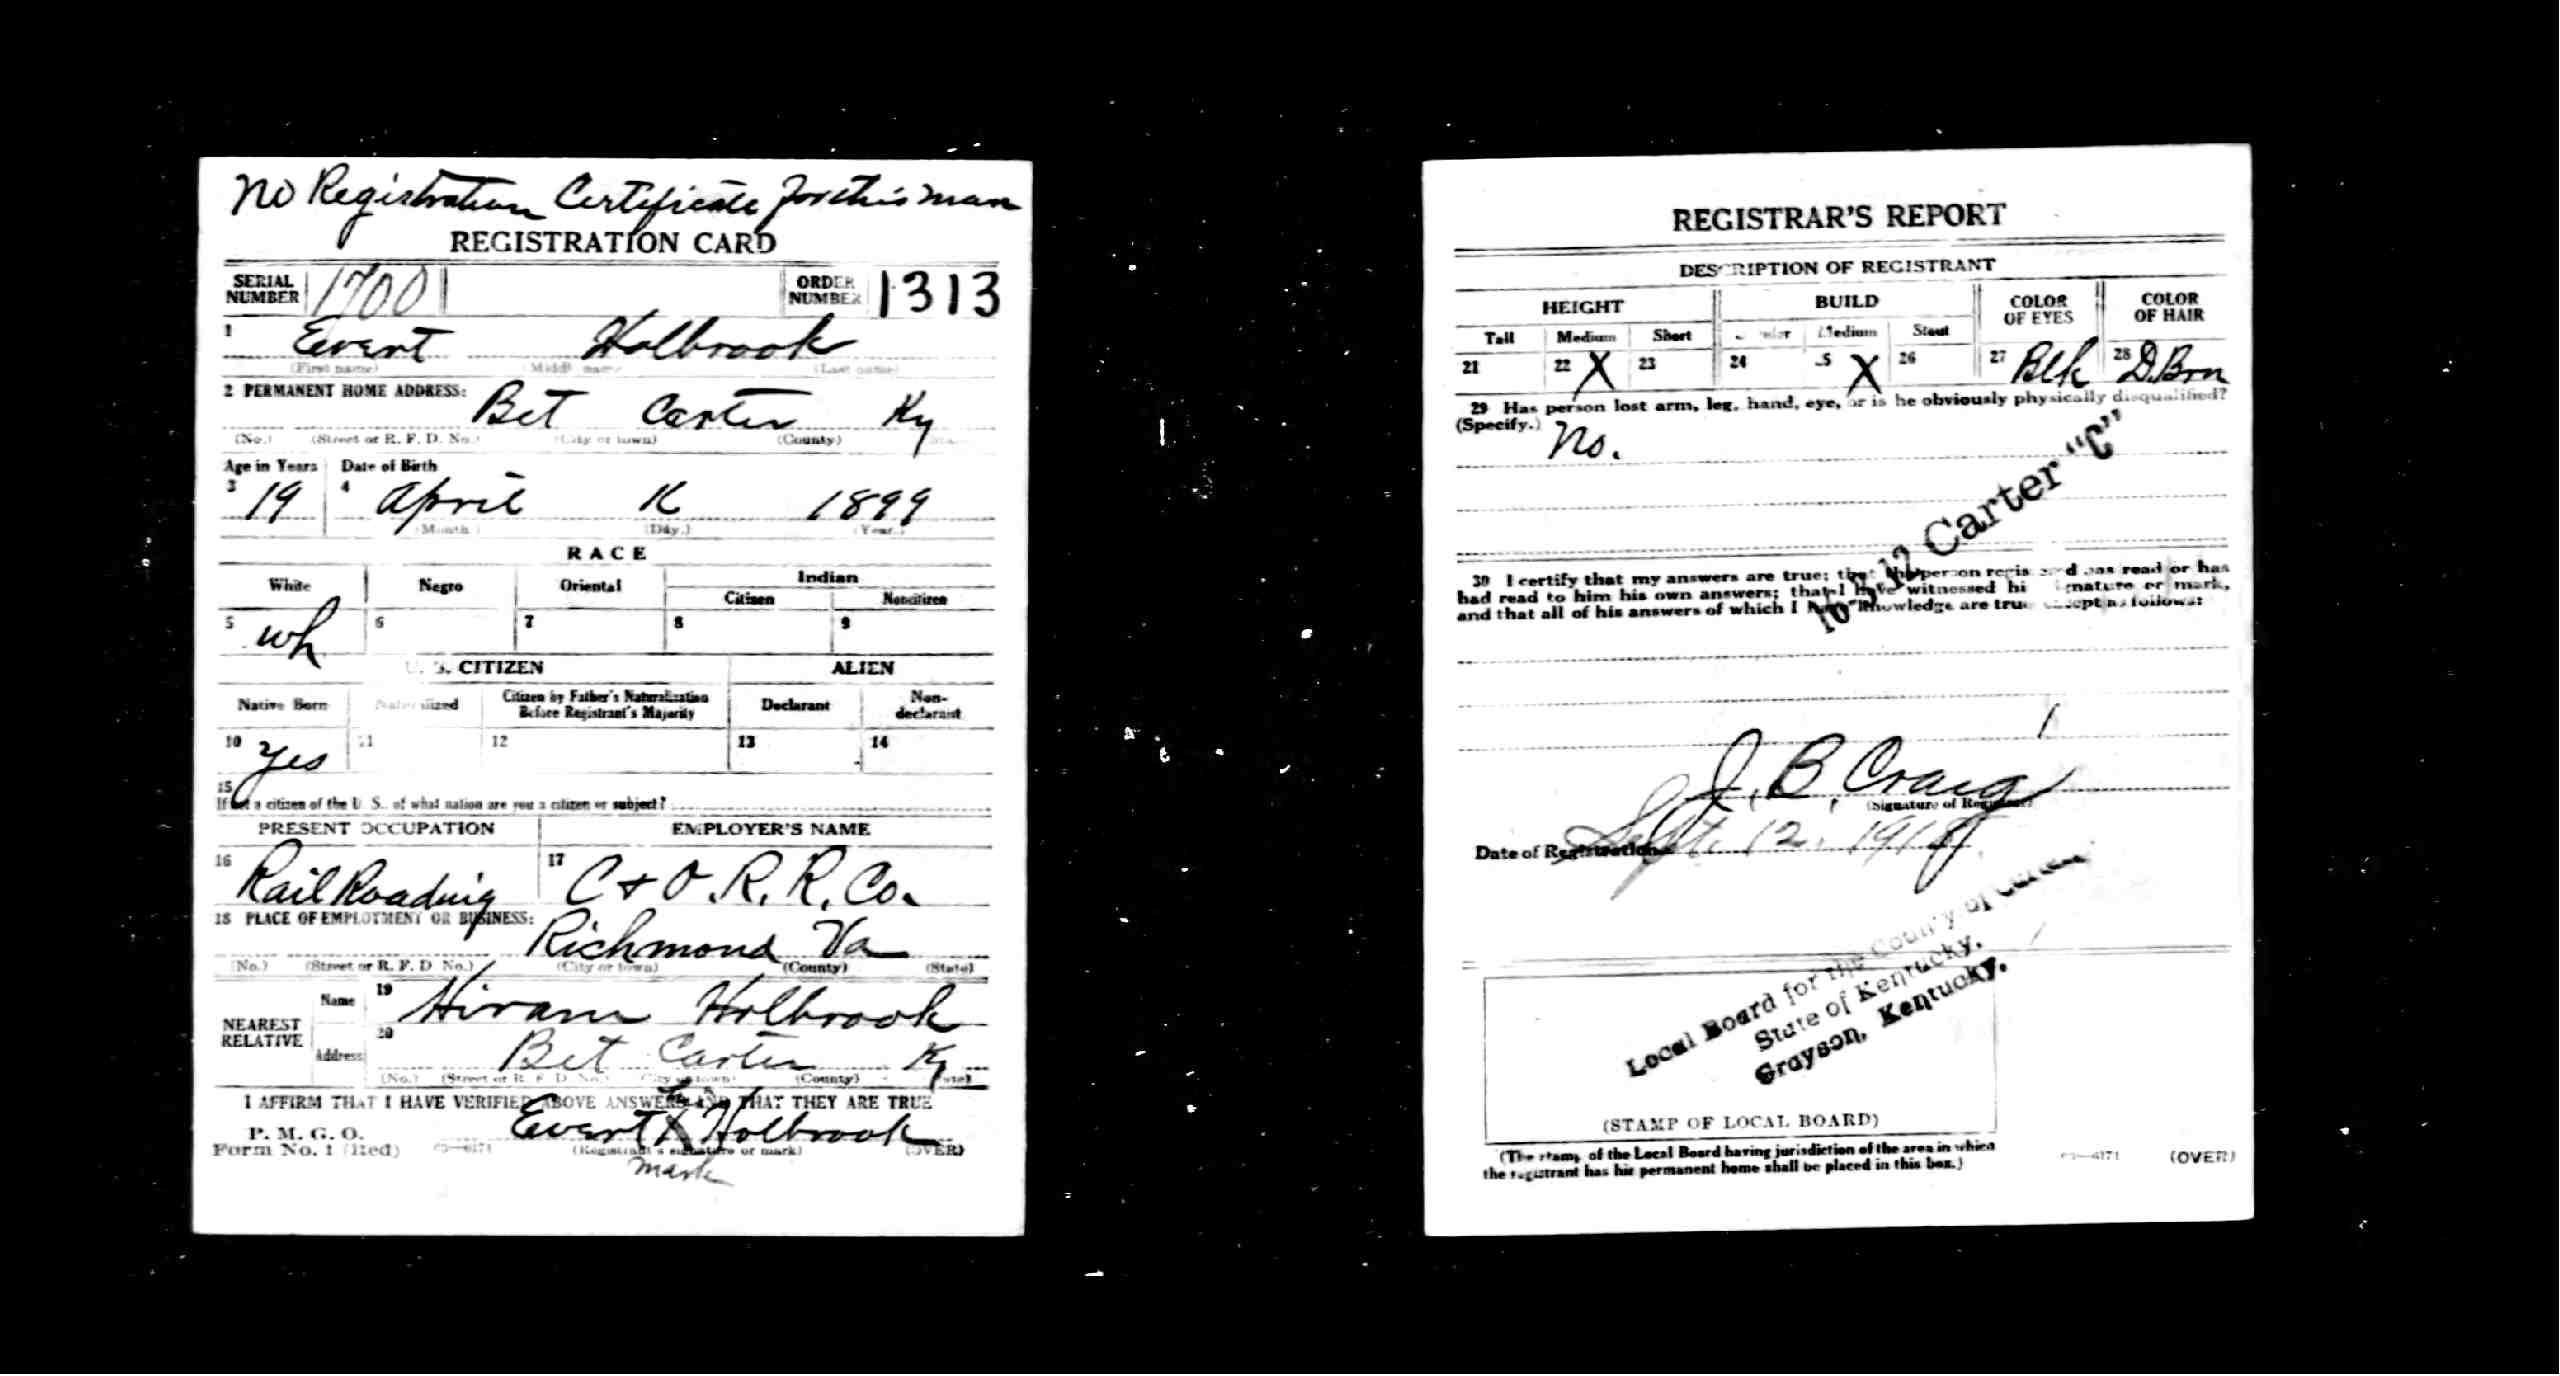 No Registration Certificate for this man
REGISTRATION CARD
SERIAL NUMBER 1700 ORDER NUMBER 1313
1 Evert Holbrook
(First name) (Middle name) (Last name)
2 PERMANENT HOME ADDRESS: Bet Carter Ky
(No.) (Street or R. F. D. No.) (City or town) (County)
Age in Years Date of Birth
3 19 4 April 1899
(Month.) (Day.) (Year.)
RACE
White Negro Oriental Indian
Citizen Noncitizen
5 Wh 6 7 8 9
U. S. CITIZEN ALIEN
Native Born Naturalized Citizen by Father's Naturalization Before Registrant's Majority Declarant Non-declarant
10 Yes 11 12 13 14
15
If not a citizen of the U. S., of what nation are you a citizen or subject?
PRESENT OCCUPATION EMPLOYER'S NAME
16 Rail Roading 17 C & O. R. R. Co.
18 PLACE OF EMPLOYMENT OR BUSINESS:
Richmond Va
(No.) (Street or R. F. D. No.) (City or town) (County) (State)
NEAREST RELATIVE Name 19 Hiram Holbrook
Address 20 Bet Carter Ky
(No.) (Street or R. F. D. No.) (City or town) (County) (State)
I AFFIRM THAT I HAVE VERIFIED ABOVE ANSWERS AND THAT THEY ARE TRUE
P. M. G. O.
Form No. 1 (Red) 03—6171 Evert X Holbrook
(Registrant's signature or mark) (OVER)
mark
REGISTRAR'S REPORT
DESCRIPTION OF REGISTRANT
HEIGHT BUILD COLOR OF EYES COLOR OF HAIR
Tall Medium Short Slender Medium Stout
21 22 X 23 24 25 X 26 27 Blk 28 D. Brn
29 Has person lost arm, leg, hand, eye, or is he obviously physically disqualified?
(Specify.) No.
16-3-12 Carter "C"
30 I certify that my answers are true; that the person registered has read or has
had read to him his own answers; that I have witnessed his signature or mark,
and that all of his answers of which I have knowledge are true, except as follows:
J. B. Craig
(Signature of Registrar)
Date of Registration Sept. 12, 1918
Local Board for the County of Carter,
State of Kentucky,
Grayson, Kentucky.
(STAMP OF LOCAL BOARD)
(The stamp of the Local Board having jurisdiction of the area in which
the registrant has his permanent home shall be placed in this box.)
03—6171 (OVER)